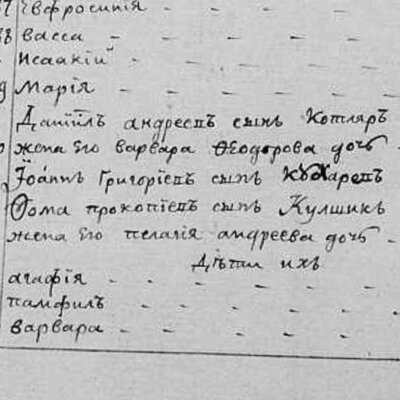 Евфросинія - - - -
васса - - - - -
Исаакій - - - - -
Марія - - - - -
Даніилъ андреевъ сынъ Котляръ
жена его варвара Ѳеодорова дочь -
Іоаннъ Григоріевъ сынъ Кухаревъ
Ѳома прокопіевъ сынъ Кулшикъ
жена его пелагія андреева дочь -
Дѣти ихъ
агафія - - - - -
памфилъ - - - - -
варвара - - - - -